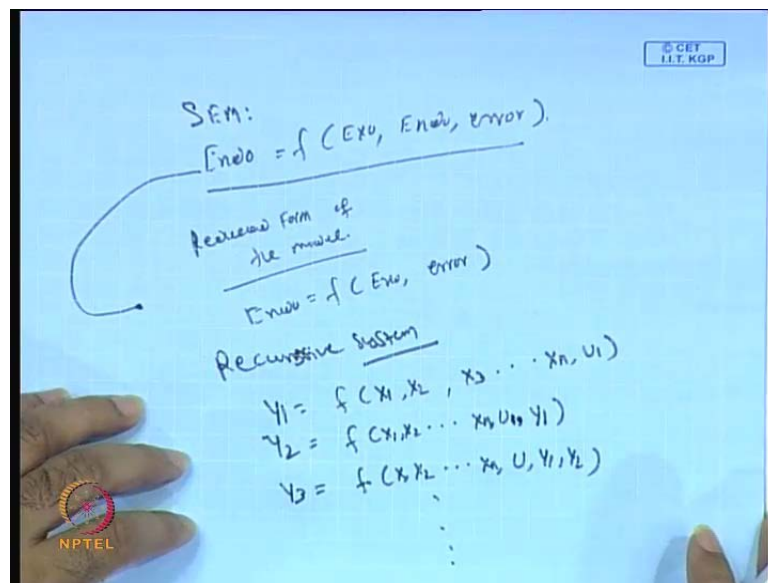 © CET
I.I.T. KGP
SEM:
Endo = f (Exo, Endo, error).
Reduced Form of
the model.
Endo = f (Exo, error)
Recursive System
Y1 = f (x1, x2, x3 . . . xn, U1)
Y2 = f (x1, x2 . . . xn, U1, Y1)
Y3 = f (x, x2 . . . xn, U, Y1, Y2)
NPTEL